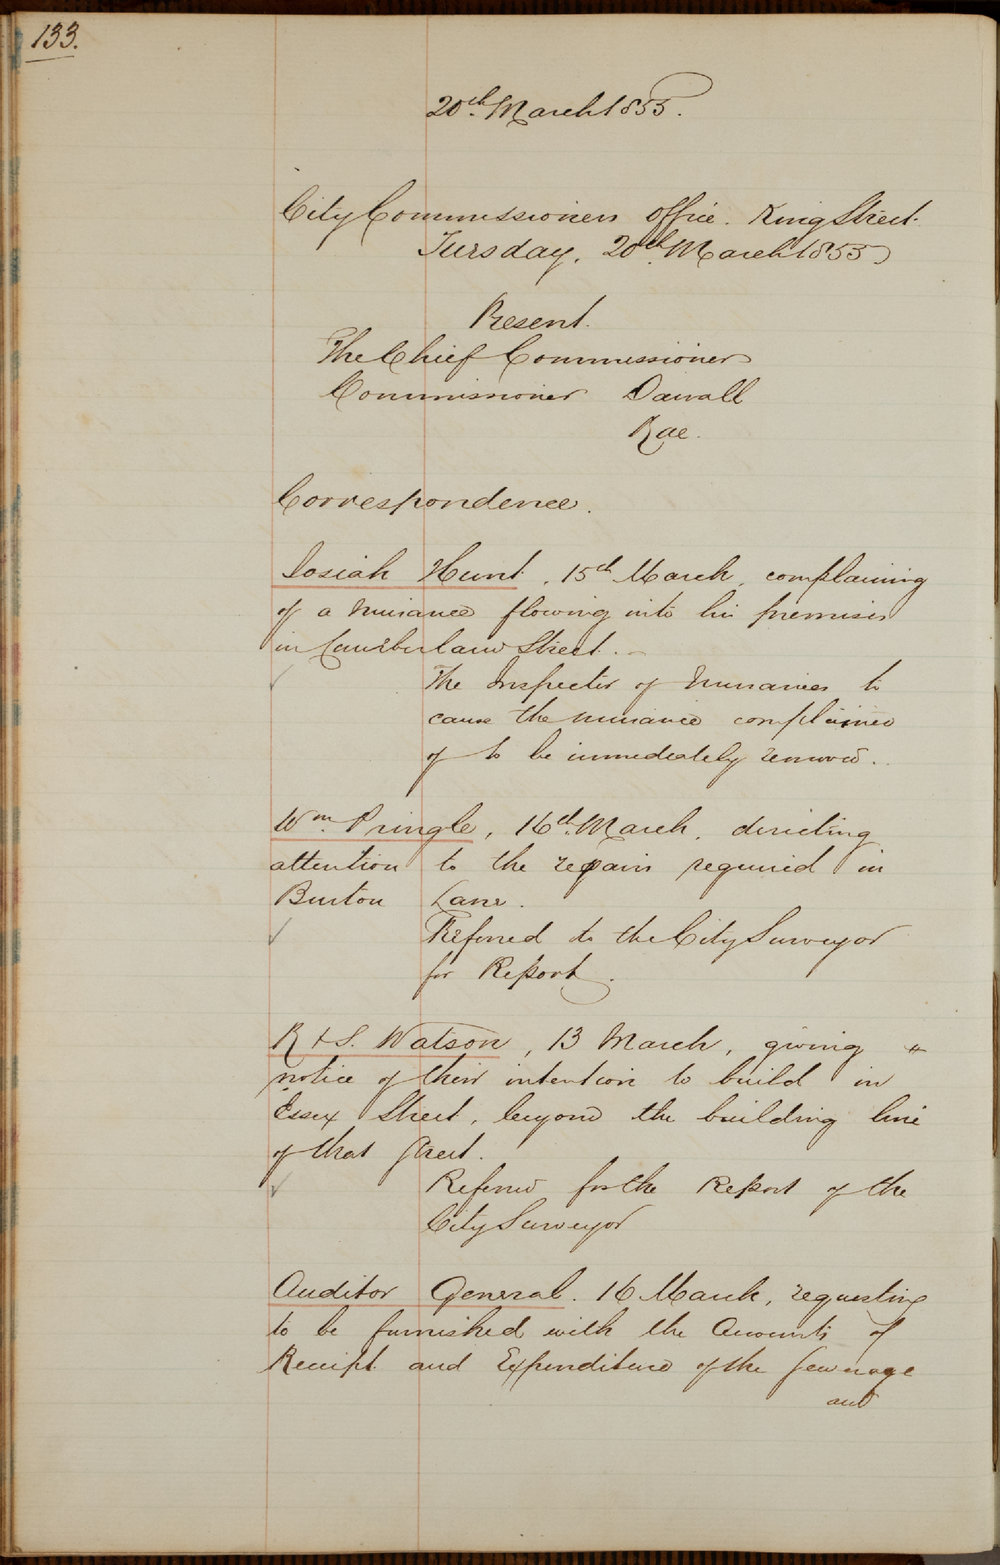 133.
20th. March 1855.
City Commissioners Office. King Street.
Tuesday, 20th. March 1855
Present.
The Chief Commissioner
Commissioner Darvall
Rae.
Correspondence.
Josiah Hunt, 15th March, complaining
of a nuisance flowing into his premises
in Cumberland Street.
The Inspector of Nuisances to
cause the nuisance complained
of to be immediately removed.
Wm. Pringle, 16th. March, directing
attention to the repairs required in
Burton Lane.
Referred to the City Surveyor
for Report.
R & S. Watson, 13 March, giving "
notice of their intention to build in
Essex Street, beyond the building line
of that Street.
Referred for the Report of the
City Surveyor
Auditor General. 16 March, requesting
to be furnished with the Accounts of
Receipt and Expenditure of the Sewerage
and